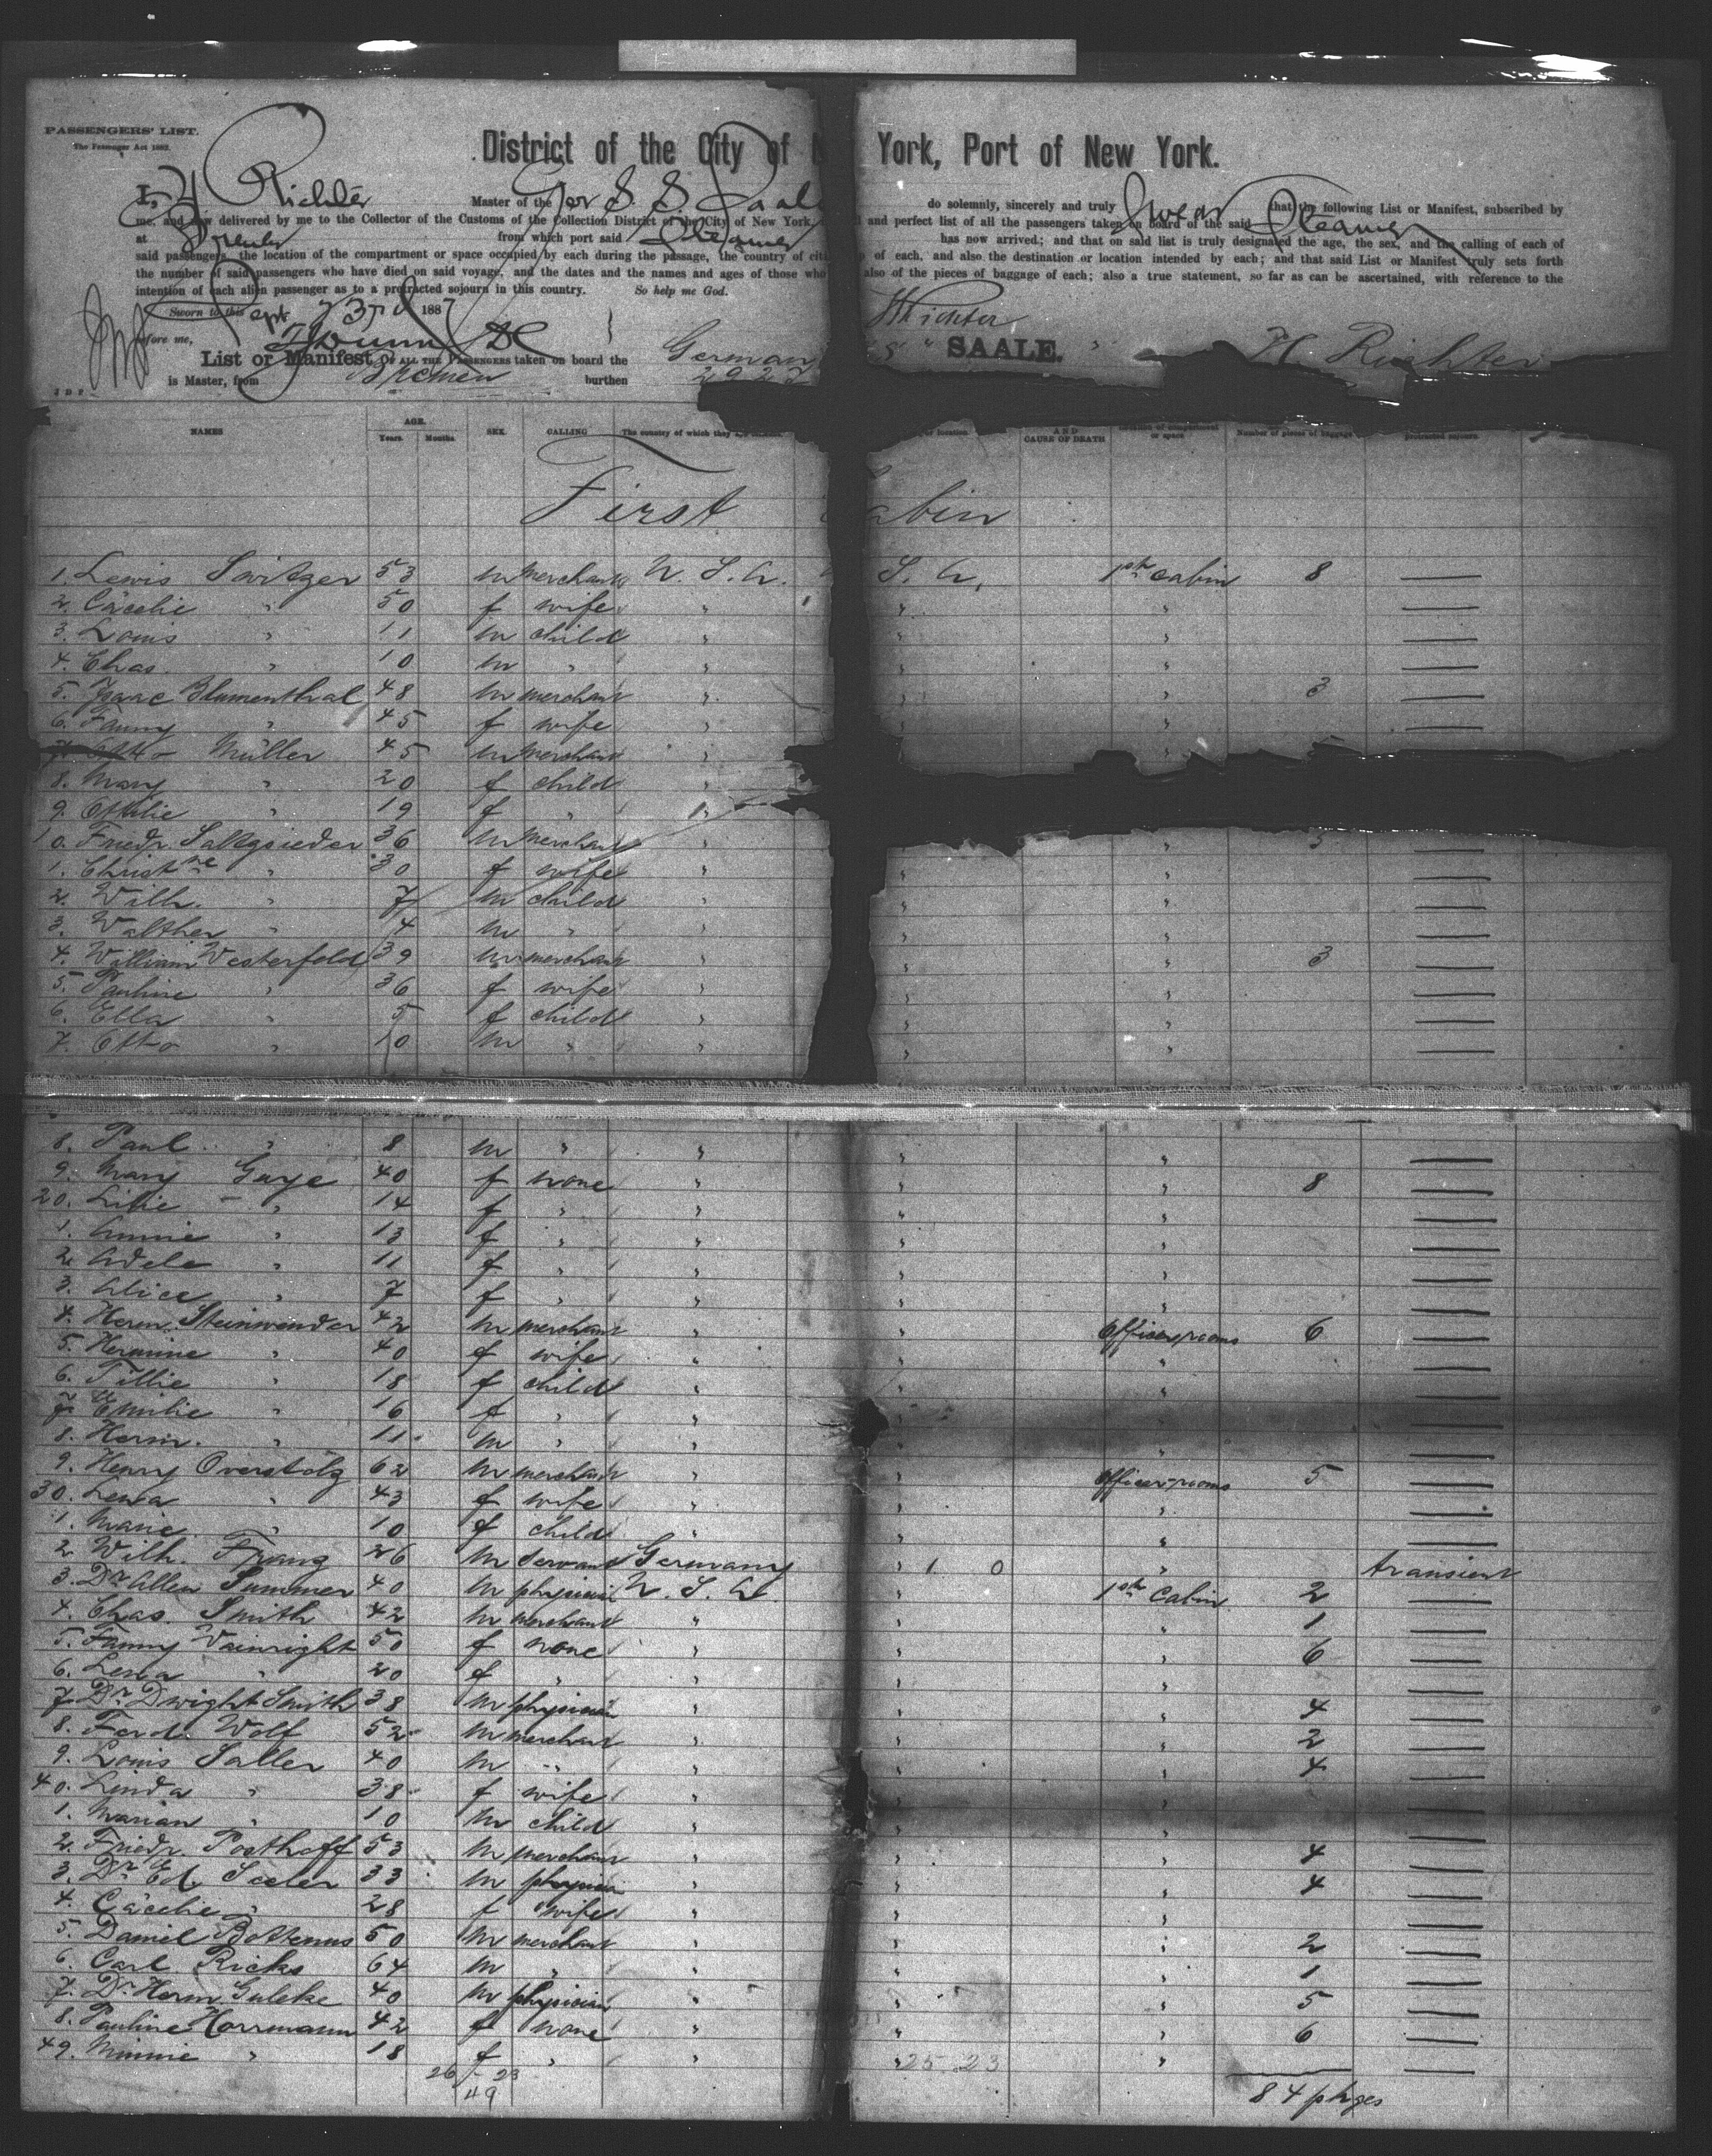 PASSENGERS' LIST.
The Passenger Act 1882.
District of the City of N York, Port of New York.
I, H Richter Master of the Ger S. S. Saale do solemnly, sincerely and truly swear that the following List or Manifest, subscribed by
me, and now delivered by me to the Collector of the Customs of the Collection District of the City of New York, and perfect list of all the passengers taken on board of the said Steamer
at Bremen from which port said Steamer has now arrived; and that on said list is truly designated the age, the sex, and the calling of each of
said passengers, the location of the compartment or space occupied by each during the passage, the country of citi p of each, and also the destination or location intended by each; and that said List or Manifest truly sets forth
the number of said passengers who have died on said voyage, and the dates and the names and ages of those who also of the pieces of baggage of each; also a true statement, so far as can be ascertained, with reference to the
intention of each alien passenger as to a protracted sojourn in this country. So help me God.
Sworn to this Sept 23rd 1887 HRichter
before me,
List or Manifest OF ALL THE PASSENGERS taken on board the German S " SAALE. " H Richter
is Master, from Bremen burthen 2927
J D P
NAMES AGE. Years. Months. SEX. CALLING The country of which they are location. AND CAUSE OF DEATH or space Number of pieces of baggage protracted sojourn.
First Cabin
1. Lewis Switzer 53 m merchant U. S. A. S. A. 1st cabin 8 —
2. Cäcelie " 50 f wife " " " —
3. Louis " 11 m child " " " —
4. Chas. " 10 m " " " " —
5. Isaac Blumenthal 48 m merchant " " 3 —
6. Fanny " 45 f wife " " " —
7. Otto Müller 45 m merchant " "
8. Mary " 20 f child "
9. Ottilie " 19 f " "
10. Friedr. Saltzgieder 36 m merchant " 5 —
1. Christne " 30 f wife " " " —
2. Wilh. " 7 m child " " " —
3. Walther " 4 m " " " " —
4. William Westerfeld 39 m merchant " " 3 —
5. Pauline " 36 f wife " " " —
6. Ella " 5 f child " " " —
7. Otto " 10 m " " " " —
8. Paul " 8 m " " " " —
9. Mary Gaye 40 f none " " " 8 —
20. Lillie " 14 f " " " " —
1. Annie " 13 f " " " " —
2. Adele " 11 f " " " " —
3. Alice " 7 f " " " " —
4. Herm. Steinwender 42 m merchant " " Officersrooms 6 —
5. Hermine " 40 f wife " " " —
6. Tillie " 18 f child " " " —
7. Emilie " 16 f " " " " —
8. Herm. " 11 m " " " " —
9. Henry Overstolz 62 m merchant " " Officer-rooms 5 —
30. Lena " 43 f wife " " " —
1. Marie " 10 f child " " " —
2. Wilh. Franz 26 m servant Germany " 1 0 " transient
3. Dr Allen Summer 40 m physician U. S. A. " 1st Cabin 2 —
4. Chas. Smith 42 m merchant " " " 1 —
5. Fanny Wainright 50 f none " " " 6 —
6. Lena " 20 f " " " " —
7. Dr Dwight Smith 38 m physician " " " 4 —
8. Ferd. Wolf 52 m merchant " " " 2 —
9. Louis Saller 40 m " " " " 4 —
40. Linda " 38 f wife " " " —
1. Marian " 10 m child " " " —
2. Friedr. Posthoff 53 m merchant " " " 4 —
3. Dr Ed. Seeler 33 m physician " " " 4 —
4. Cäcelie " 28 f wife " " " —
5. Daniel Bottenus 50 m merchant " " " 2 —
6. Carl Ricks 64 m " " " " 1 —
7. Dr. Herm Guleke 40 m physician " " " 5 —
8. Pauline Horrmann 42 f none " " " 6 —
49. Minnie " 18 f " " " 25 23 " —
26 / 23
49
84 pkges